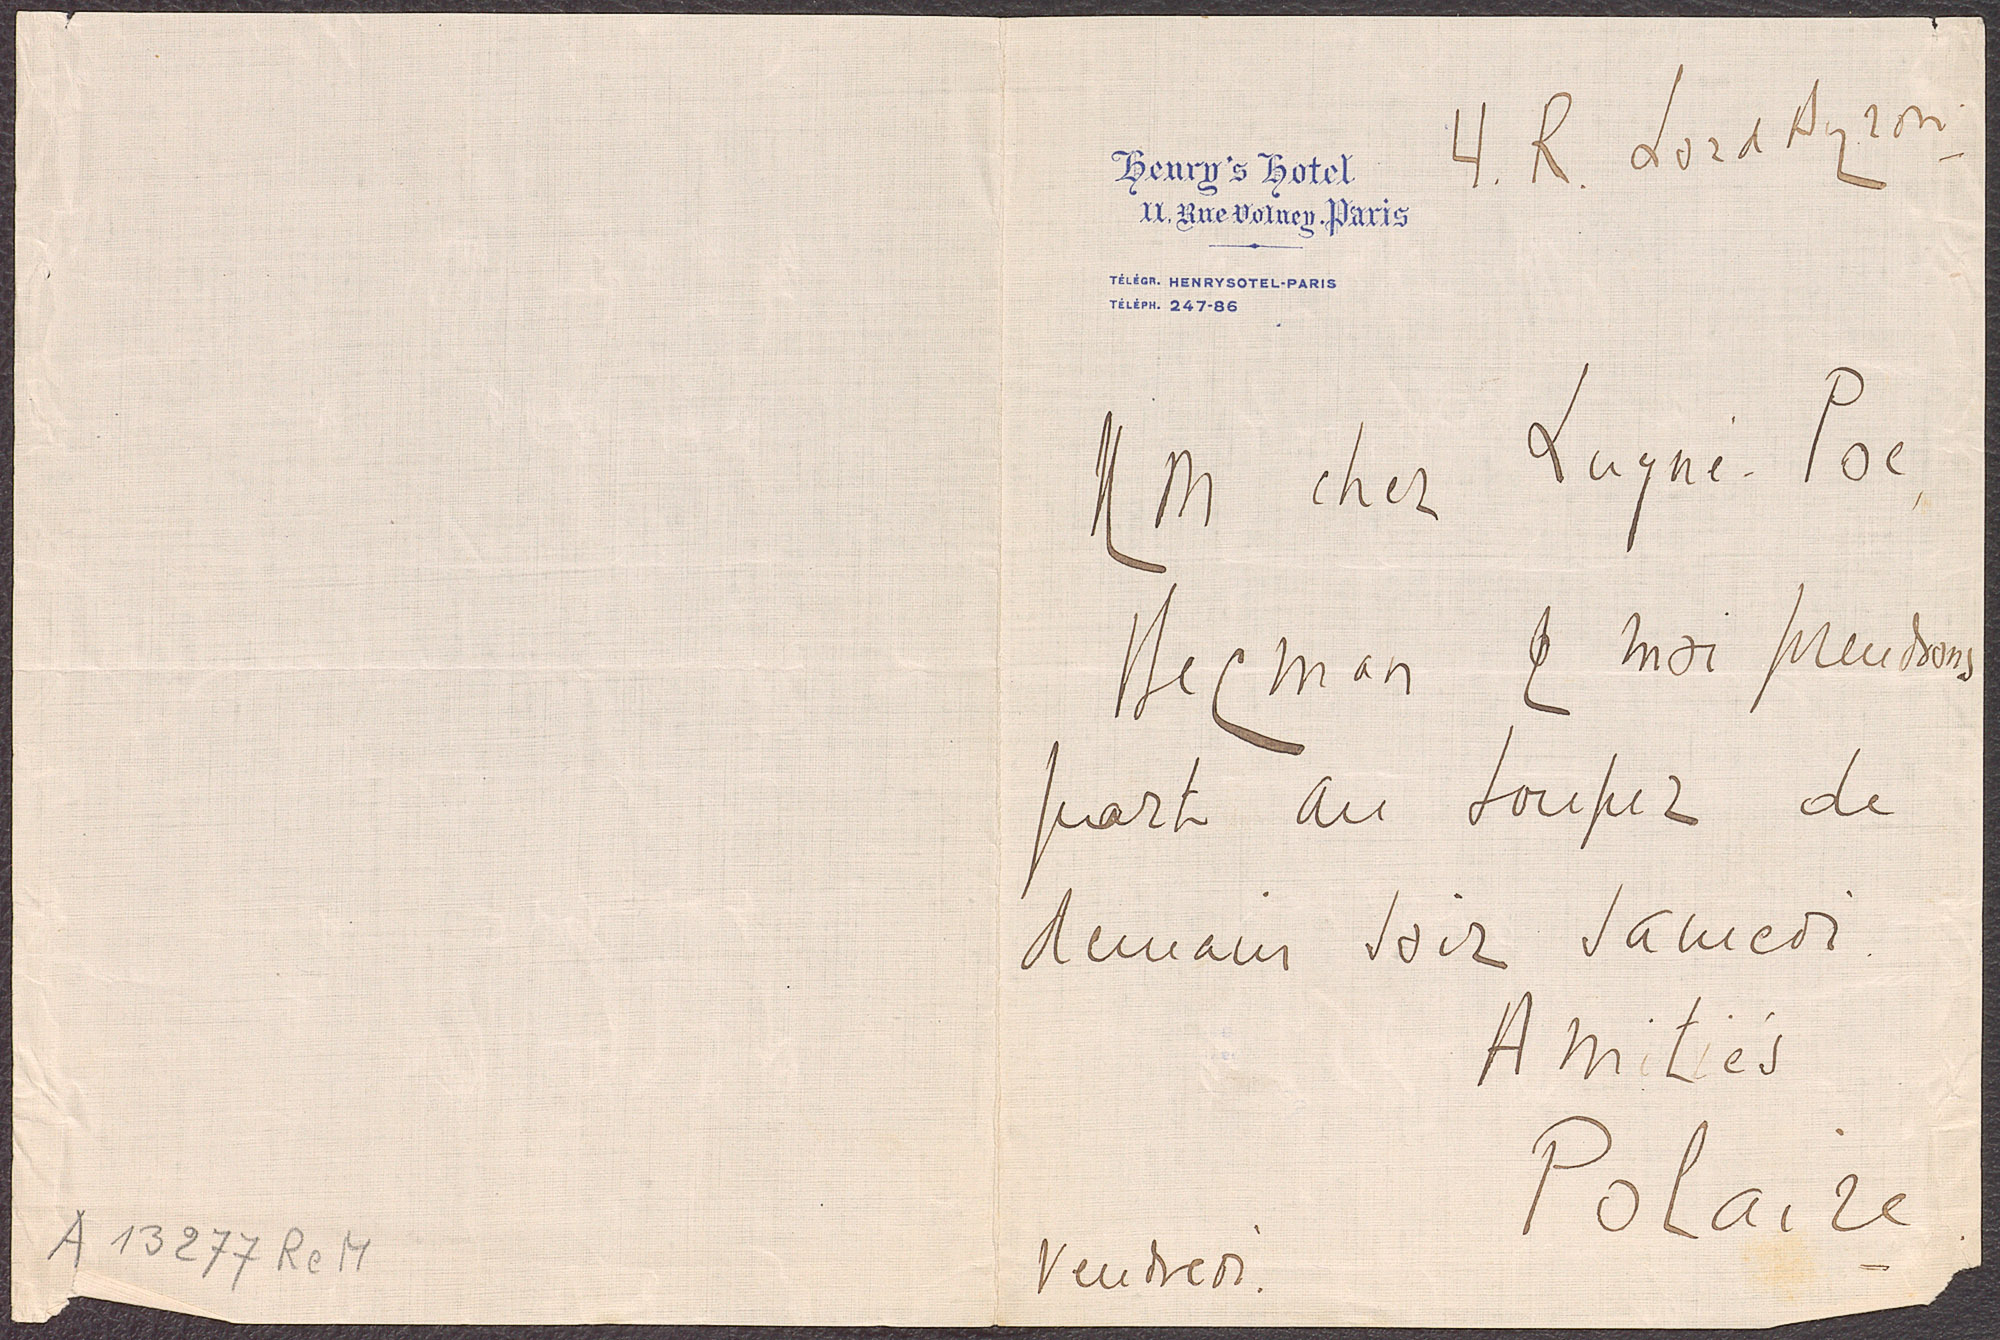 4. R. Lord Byron
Henry's Hotel
11. Rue Volney. Paris
TÉLÉGR. HENRYSOTEL-PARIS
TÉLÉPH. 247-86
M cher Lugné-Poe,
& moi prendrons
part au souper de
demain soir samedi.
Amitiés
Polaire
Vendredi.
A 13277 ReM